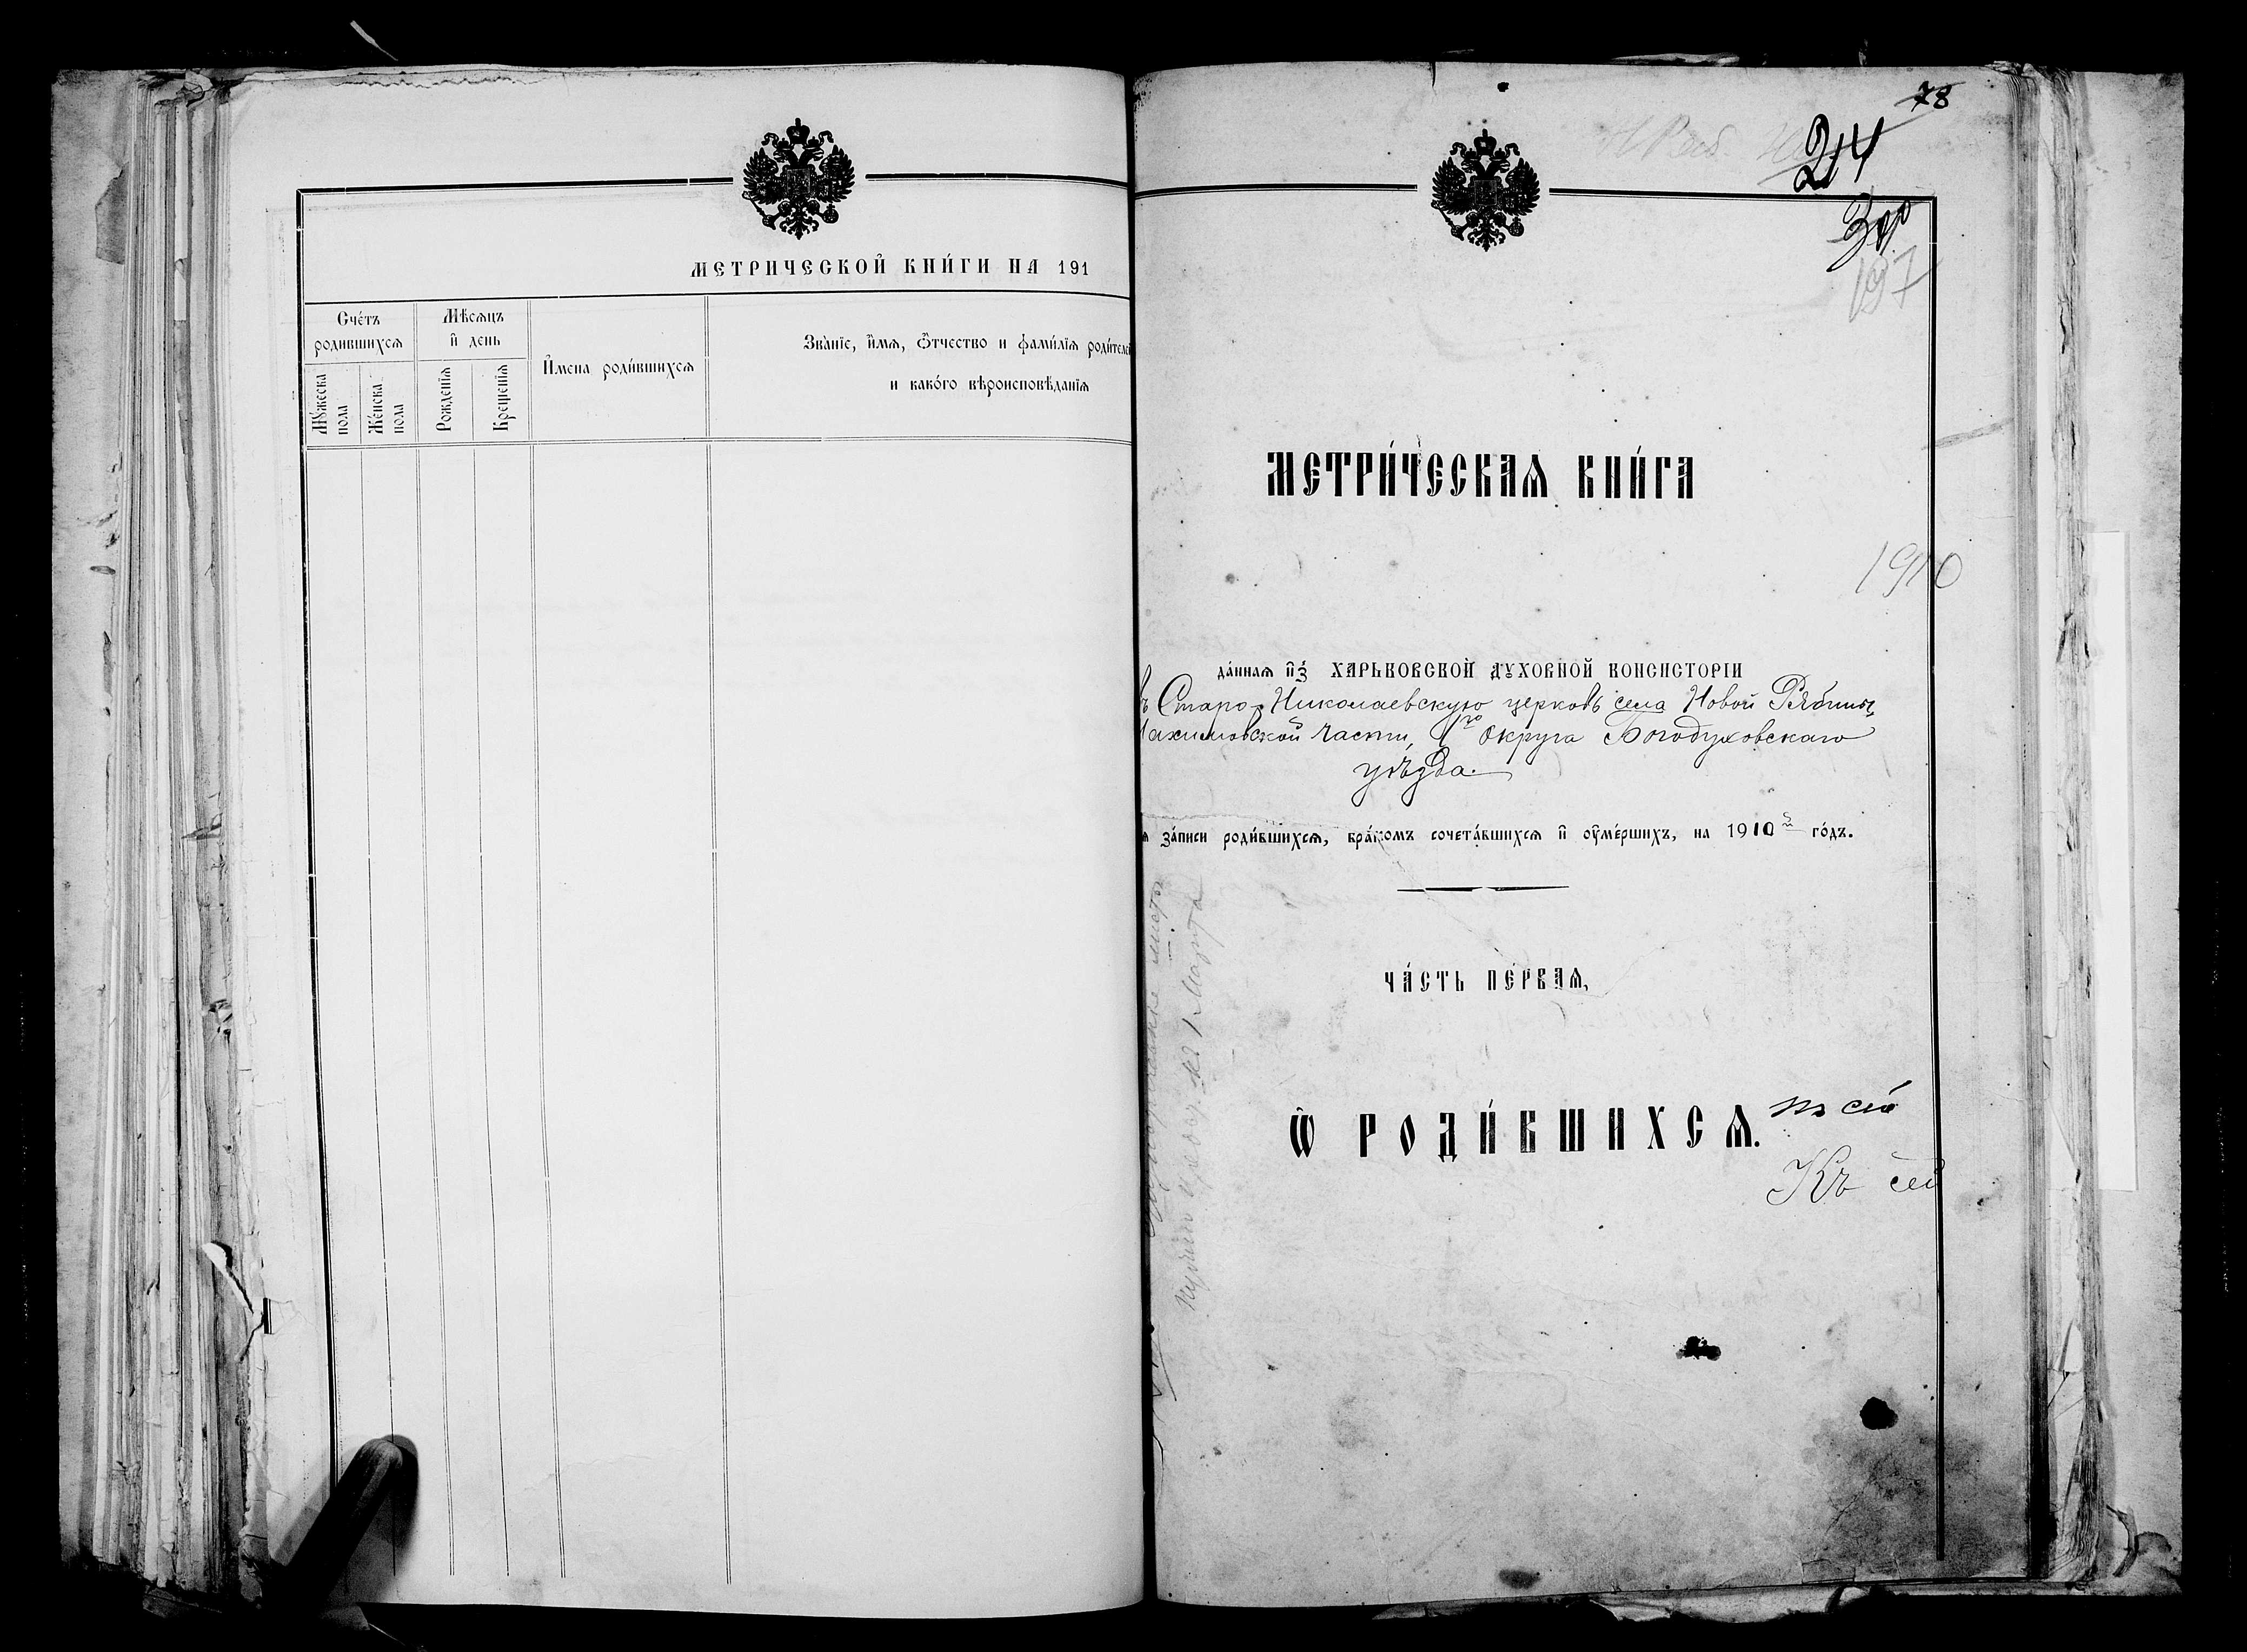 МЕТРИЧЕСКОЙ КНИ́ГИ НА 191
Сче́тъ родившихся
Мѣсяцъ и҆ день
И҆мена роди́вшихся
Зва́нїе, и҆́мя, ѻ҆́тчество и фами́лїя роди́теле
и како́го вѣроисповѣ́данїя
Мꙋ́жеска пола
Же́нска пола
Рожденїя
Крещенїя
78
214
197
МЕТРИ́ЧЕСКАЯ КНИ́ГА
1910
да́нная и҆з̾ ХАРЬКОВСКОЙ ДꙊХОВНОЙ КОНСИСТОРІИ
ъ Старо-Николаевскую церковь села Новой Рябины,
ахимовской части, 1го округа Богодуховскаго
уѣзда.
я за́писи роди́вшихся, бра́комъ сочета́вшихся и҆ оу҆ме́ршихъ, на 1910й го́дъ.
ЧА́СТЬ ПЕ́РВАЯ,
Ѡ҆ РОДИ́ВШИХСЯ.
Къ сей
листы
къ 1 Марта